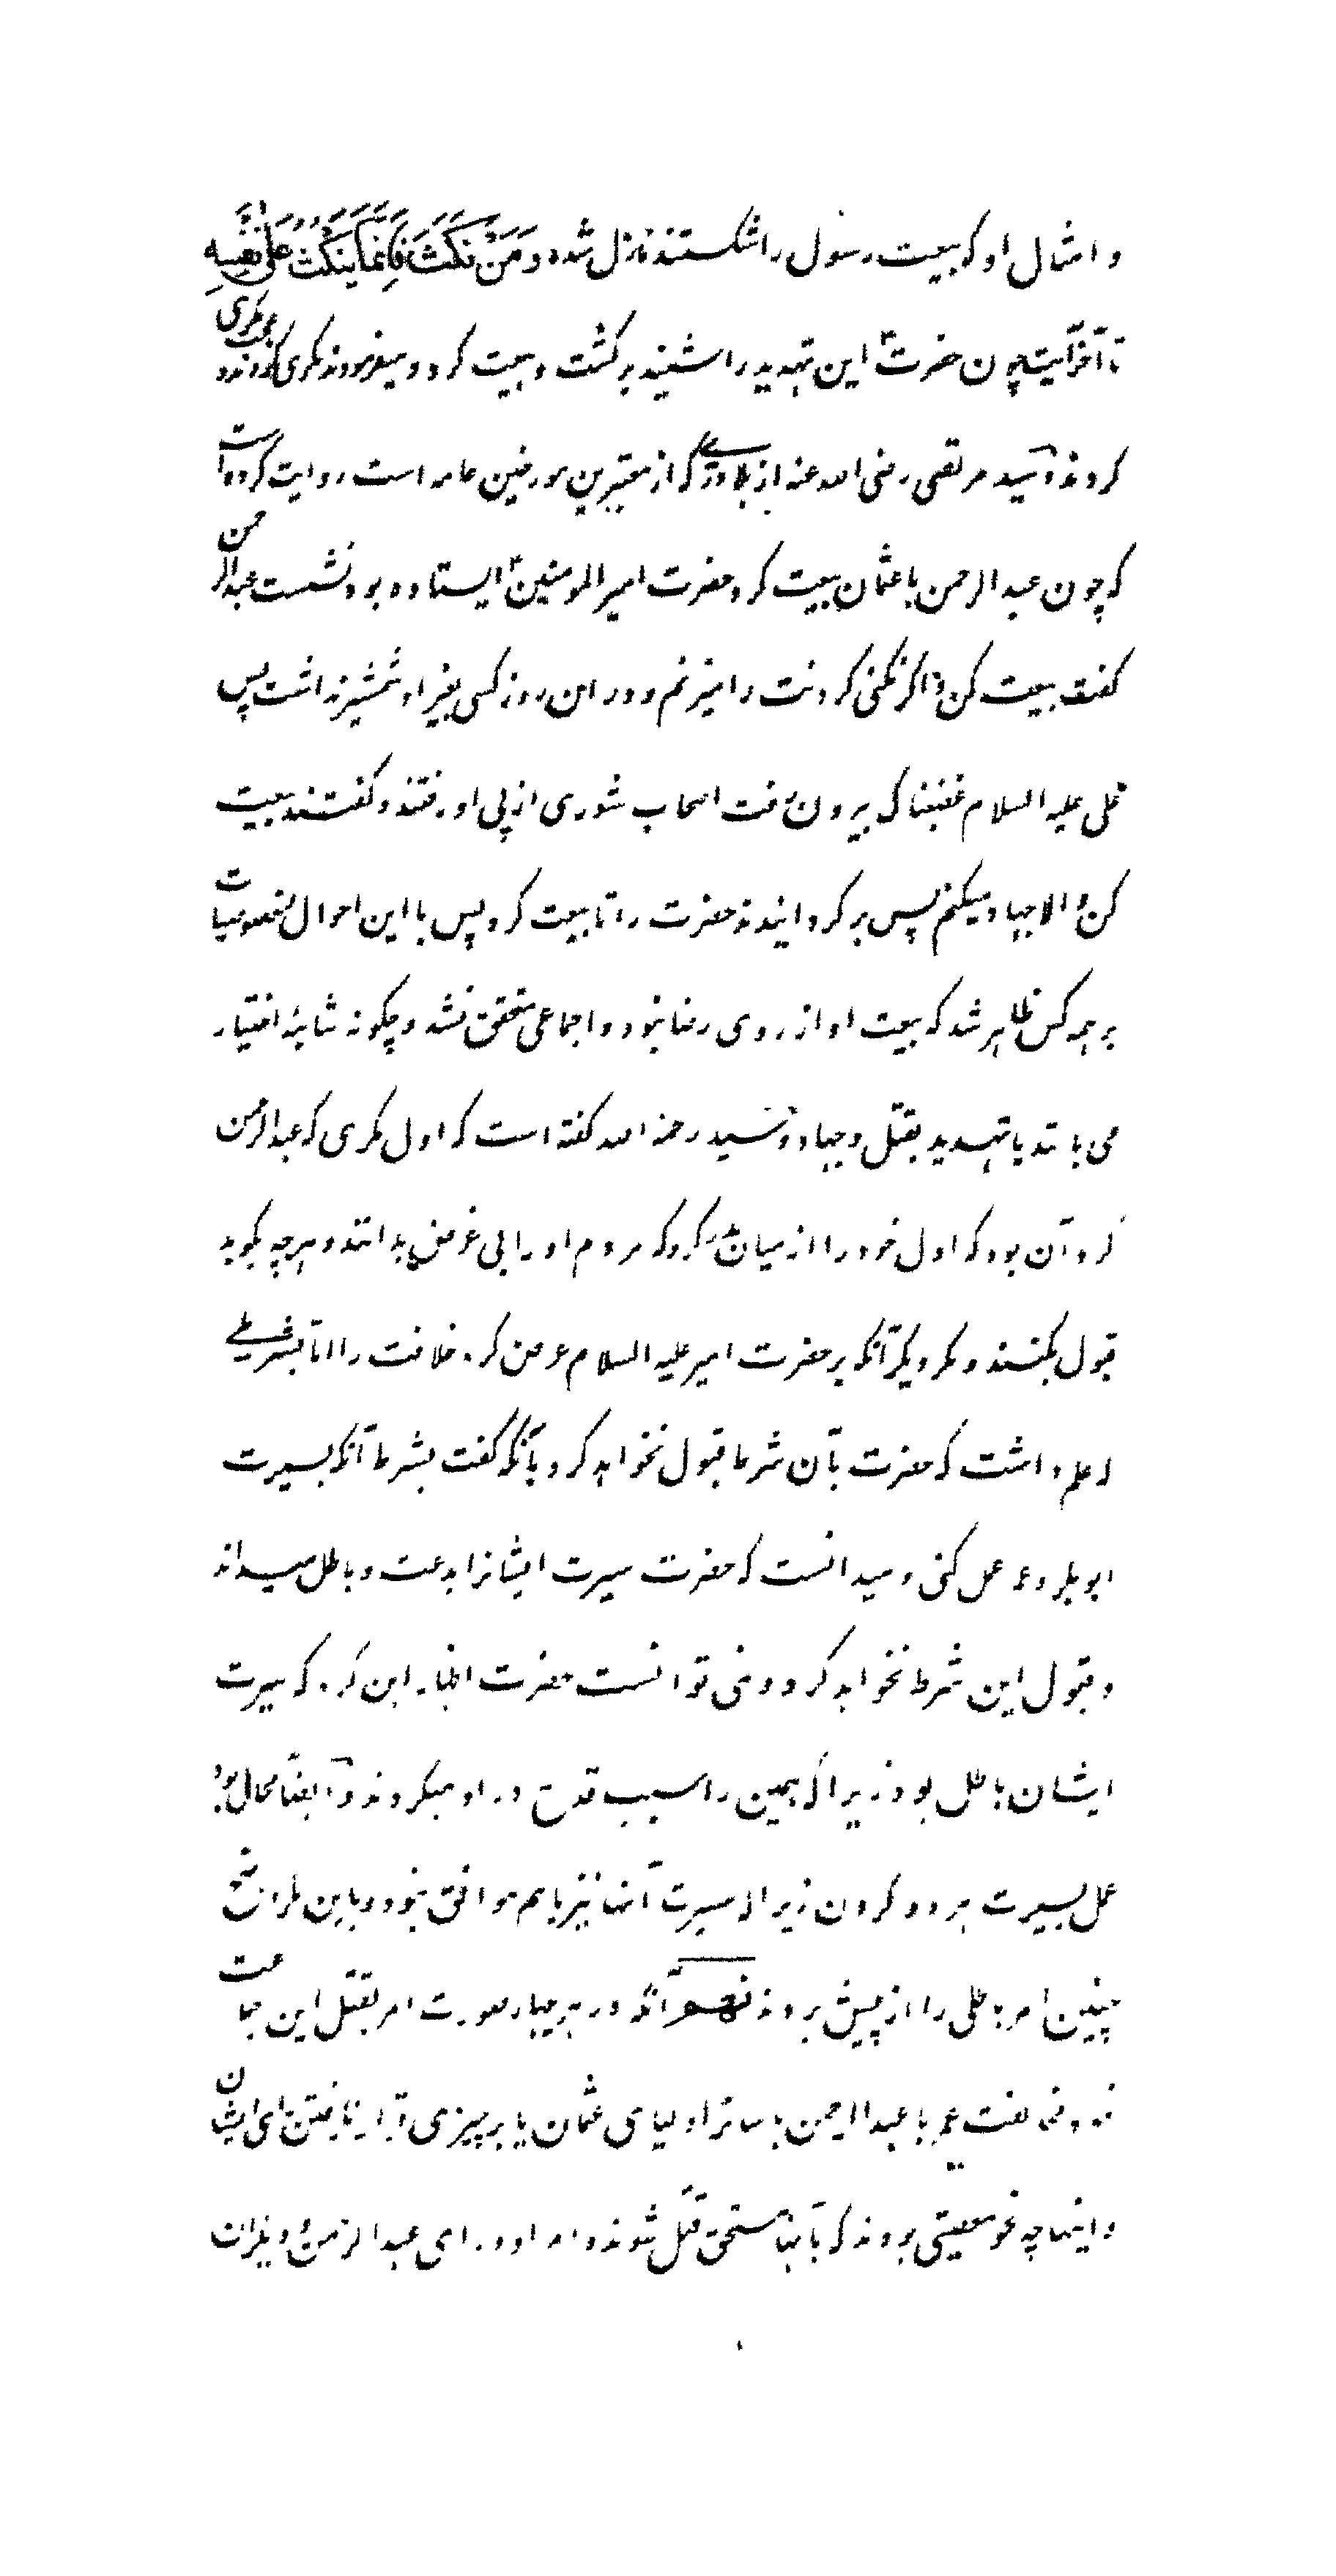 و امثال او که بیعت رسول را شکستند نازل شده وَمَنْ نَكَثَ فَإِنَّمَا يَنْكُثُ عَلَىٰ نَفْسِهِ
تا آخر آیت چون حضرت این تهدید را شنید برگشت و بیعت کرد و میفرمود نه مکری کردند و عجب مکری
کردند و سید مرتضی رضی الله عنه از بلاذری که از معتبرین مورخین عامه است روایت کرده است
که چون عبد الرحمن با عثمان بیعت کرد حضرت امیر المومنین ایستاده بود نشست عبد الرحمن
کفت بیعت کن و اگر نکنی کردنت را میزنم و در این روز کسی بغیر او شمشیر نداشت پس
علی علیه السلام غضبناک بیرون رفت اصحاب شوری از پی او رفتند و کفتند بیعت
کن و الا جهاد میکنم پس بر کردانیدند حضرت را تا بیعت کرد پس با این احوال خصوصیات
بر همه کس ظاهر شد که بیعت او از روی رضا نبود و اجماعی متحقق نشد و چکونه شایبهٔ اختیار
می باشد با تهدید بقتل و جهاد و سید رحمه الله کفته است که اول مکری که عبد الرحمن
کرد آن بود که اول خود را از میان بدر کرد که مردم او را بی غرض بدانند و هر چه بکوید
قبول بکنند و مکر دیکر آنکه بر حضرت امیر علیه السلام عرض کرد خلافت را اما بشرطی
که علم داشت که حضرت بآن شرط قبول نخواهد کرد بآنکه کفت بشرط آنکه بسیرت
ابو بکر و عمر عمل کنی و میدانست که حضرت سیرت ایشانرا بدعت و باطل میداند
و قبول این شرط نخواهد کرد و نمی توانست حضرت اظهار این کرد که سیرت
ایشان باطل بود زیرا که همین را سبب قدح در او میکردند و ایضا محال بود
عمل بسیرت هر دو کردن زیرا که سیرت آنها نیز با هم موافق نبود و باین طرا شخ
چنین امر باطلی را از پیش بردند نهم آنکه در هر چهار صورت امر بقتل این جماعت
نمود مخالفت عمر با عبد الرحمن با سایر اولیای عثمان یا بر چیزی قرار نایافتن رای ایشان
و اینها چه نحو معصیتی بودند که بآنها مستحق قتل شوند و امر او در رای عبد الرحمن و یغران